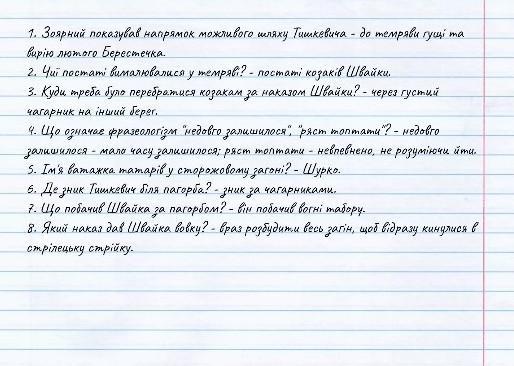 1. Зоярний показував напрямок можливого шляху Тишкевича - до темряви гущі та
вирію лютого Берестечка.
2. Чиї постаті вималювалися у темряві? - постаті козаків Швайки.
3. Куди треба було перебратися козакам за наказом Швайки? - через густий
чагарник на інший берег.
4. Що означає фразеологізм "недовго залишилося", "ряст топтати"? - недовго
залишилося - мало часу залишилося; ряст топтати - невпевнено, не розуміючи йти.
5. Ім'я ватажка татарів у сторожовому загоні? - Шурко.
6. Де зник Тишкевич біля пагорба? - зник за чагарниками.
7. Що побачив Швайка за пагорбом? - він побачив вогні табору.
8. Який наказ дав Швайка вовку? - враз розбудити весь загін, щоб відразу кинулися в
стрілецьку стрійку.